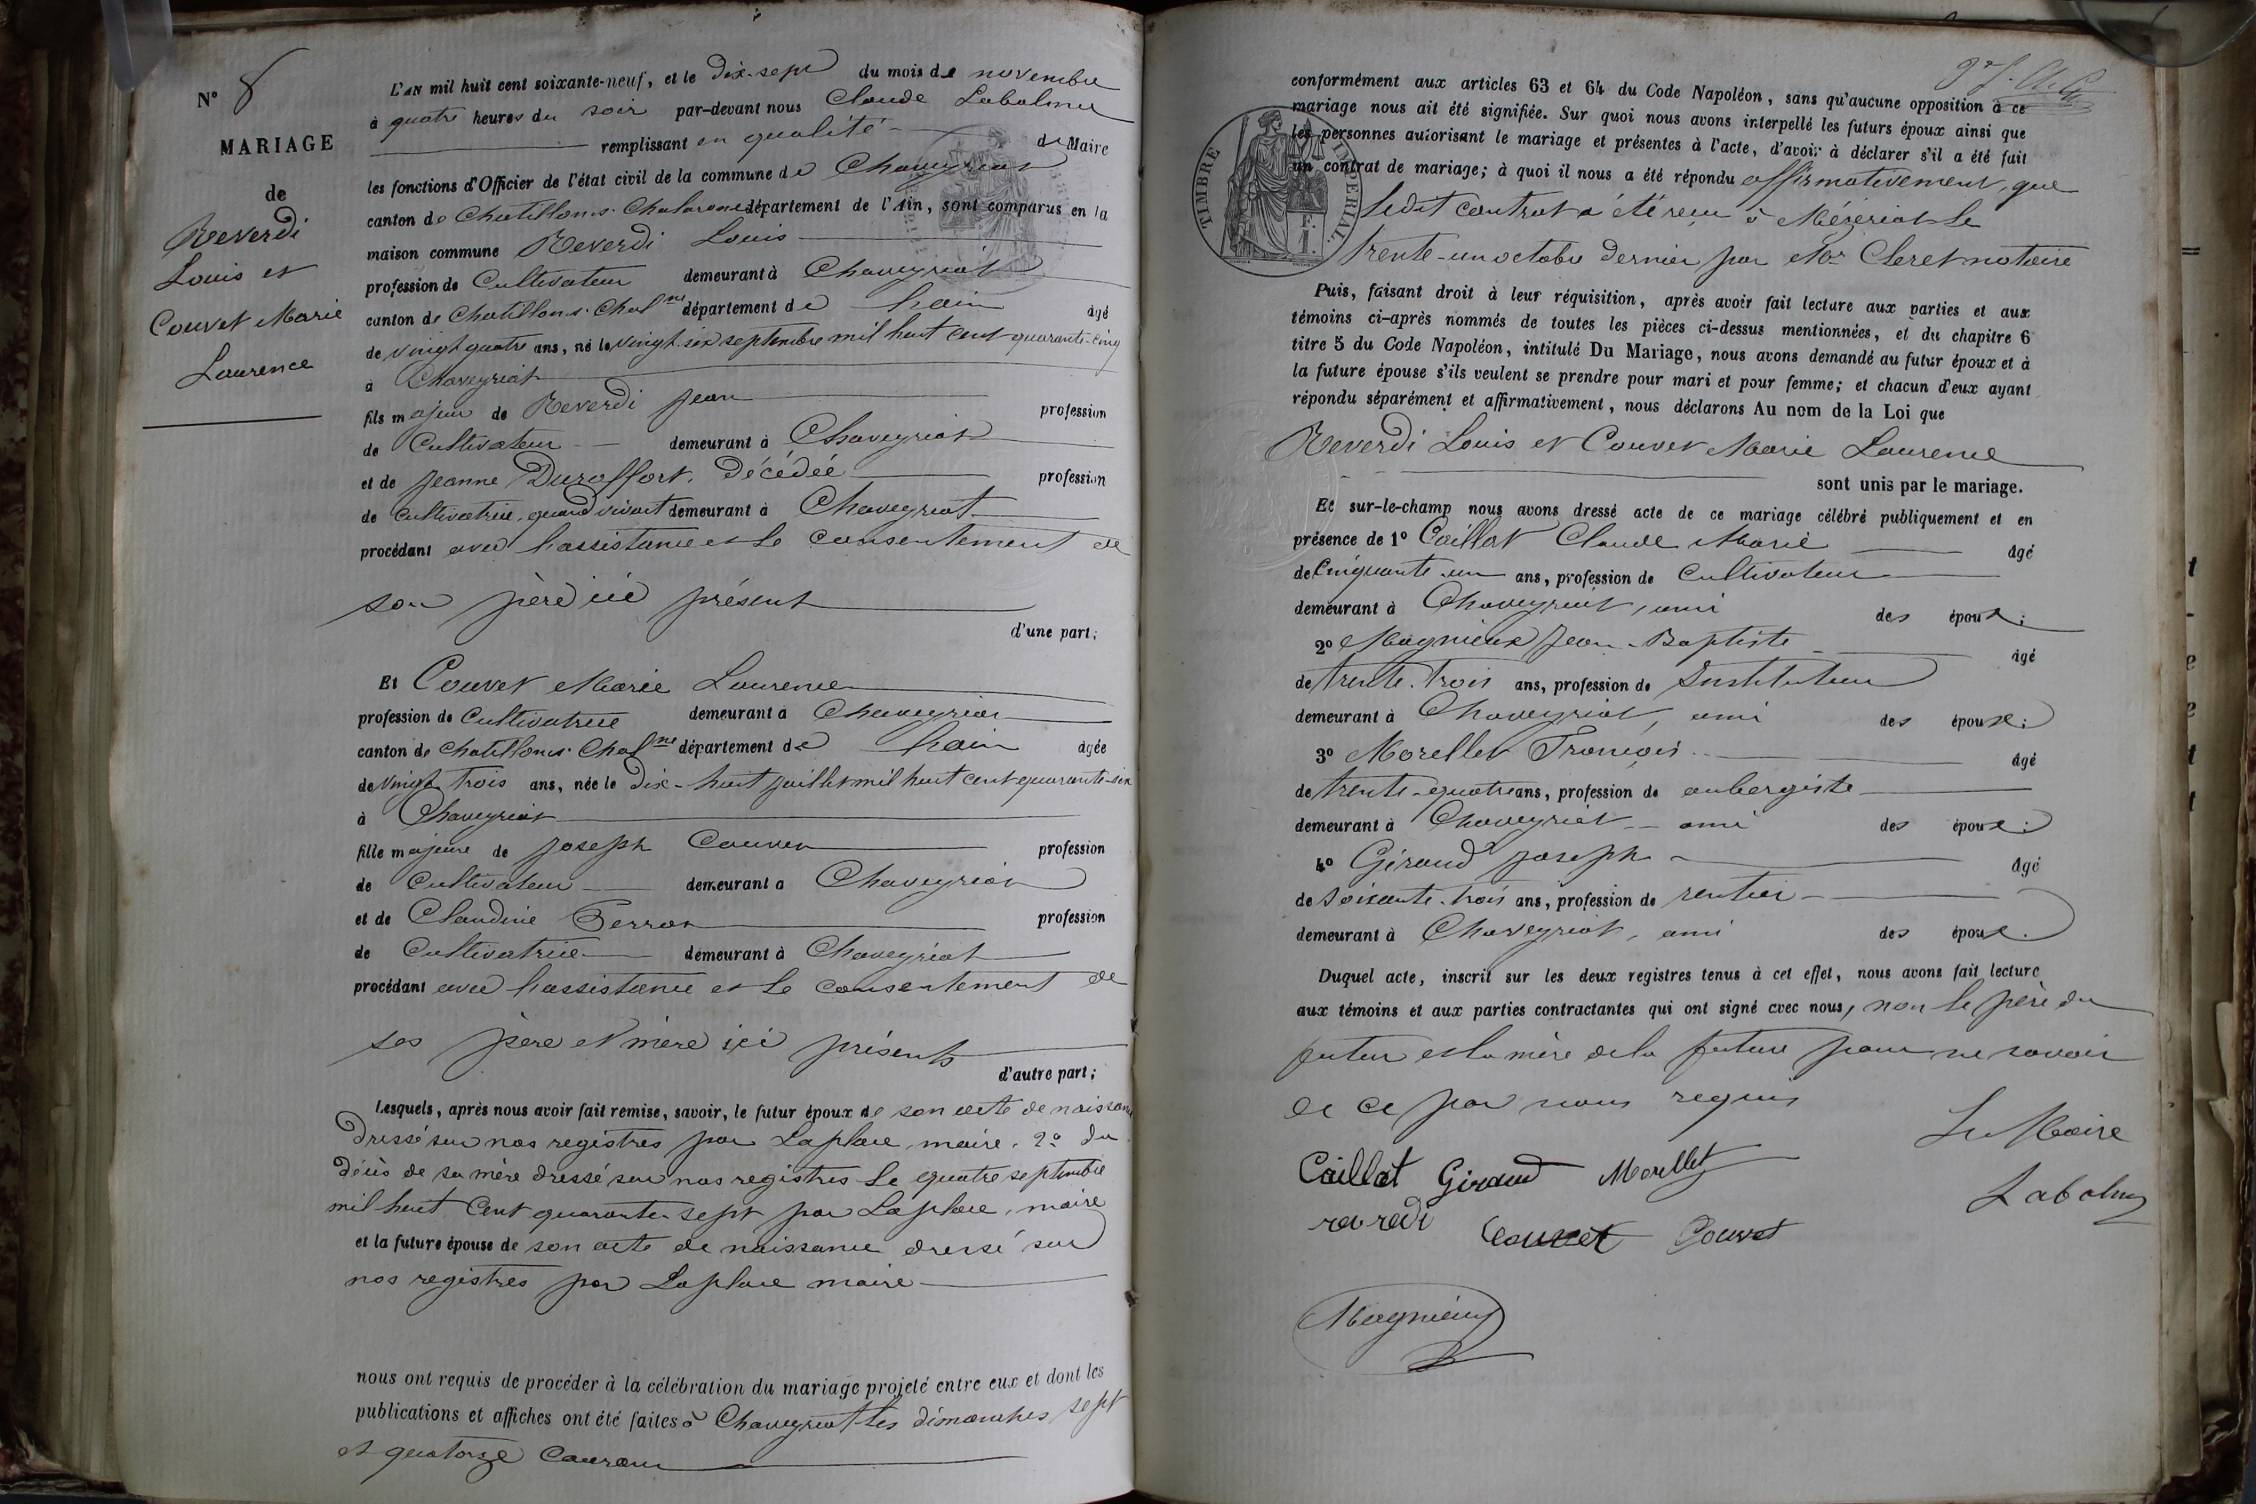 N° 8
MARIAGE
de
Reverdi
Louis et
Couvet Marie
Laurence
L'AN mil huit cent soixante-neuf, et le dix-sept du mois de novembre
à quatre heures du soir par-devant nous Claude Labalme
remplissant en qualité de Maire
les fonctions d'Officier de l'état civil de la commune de Chaveyriat
canton de Chatillon s. Chalaronne département de l'Ain, sont comparus en la
maison commune Reverdi Louis
profession de Cultivateur demeurant à Chaveyriat
canton de Chatillon s. Chalne département de l'ain âgé
de vingt quatre ans, né le vingt six septembre mil huit cent quarante-cinq
à Chaveyriat
fils majeur de Reverdi Jean profession
de Cultivateur demeurant à Chaveyriat
et de Jeanne Duroffort, décédée profession
de cultivatrice, quand vivait demeurant à Chaveyriat
procédant avec l'assistance et le consentement de
son père ici présent
d'une part;
Et Couvet Marie Laurence
profession de Cultivatrice demeurant à Chaveyriat
canton de Chatillon s. Chalne département de l'ain âgée
de vingt trois ans, née le dix-huit juillet mil huit cent quarante-six
à Chaveyriat
fille majeure de Joseph Couvet profession
de Cultivateur demeurant à Chaveyriat
et de Claudine Ferron profession
de Cultivatrice demeurant à Chaveyriat
procédant avec l'assistance et le consentement de
ses père et mère ici présents
d'autre part;
Lesquels, après nous avoir fait remise, savoir, le futur époux de son acte de naissance
dressé sur nos registres par Laplace, maire. 2° du
décès de sa mère dressé sur nos registres le quatre septembre
mil huit cent quarante-sept par Laplace, maire
et la future épouse de son acte de naissance dressé sur
nos registres par Laplace maire
nous ont requis de procéder à la célébration du mariage projeté entre eux et dont les
publications et affiches ont été faites à Chaveyriat les dimanches sept
et quatorze courant
conformément aux articles 63 et 64 du Code Napoléon, sans qu'aucune opposition à ce
mariage nous ait été signifiée. Sur quoi nous avons interpellé les futurs époux ainsi que
les personnes autorisant le mariage et présentes à l'acte, d'avoir à déclarer s'il a été fait
un contrat de mariage; à quoi il nous a été répondu affirmativement, que
ledit contrat a été reçu à Mézériat le
trente-un octobre dernier par Me Cleret notaire
TIMBRE IMPERIAL
1 F.
Puis, faisant droit à leur réquisition, après avoir fait lecture aux parties et aux
témoins ci-après nommés de toutes les pièces ci-dessus mentionnées, et du chapitre 6
titre 5 du Code Napoléon, intitulé Du Mariage, nous avons demandé au futur époux et à
la future épouse s'ils veulent se prendre pour mari et pour femme; et chacun d'eux ayant
répondu séparément et affirmativement, nous déclarons Au nom de la Loi que
Reverdi Louis et Couvet Marie Laurence
sont unis par le mariage.
Et sur-le-champ nous avons dressé acte de ce mariage célébré publiquement et en
présence de 1° Caillat Claude Marie âgé
de Cinquante-un ans, profession de Cultivateur
demeurant à Chaveyriat, ami des époux;
2° Magnieux Jean-Baptiste âgé
de trente-trois ans, profession de Instituteur
demeurant à Chaveyriat, ami des époux;
3° Morellet François âgé
de trente-quatre ans, profession de aubergiste
demeurant à Chaveyriat ami des époux;
4° Giraud Joseph âgé
de soixante-trois ans, profession de rentier
demeurant à Chaveyriat, ami des époux.
Duquel acte, inscrit sur les deux registres tenus à cet effet, nous avons fait lecture
aux témoins et aux parties contractantes qui ont signé avec nous, non le père du
futur et la mère de la future pour ne savoir
de ce par nous requis
Le Maire
Caillat Giraud Morellet
Labalme
revredi Couvet Couvet